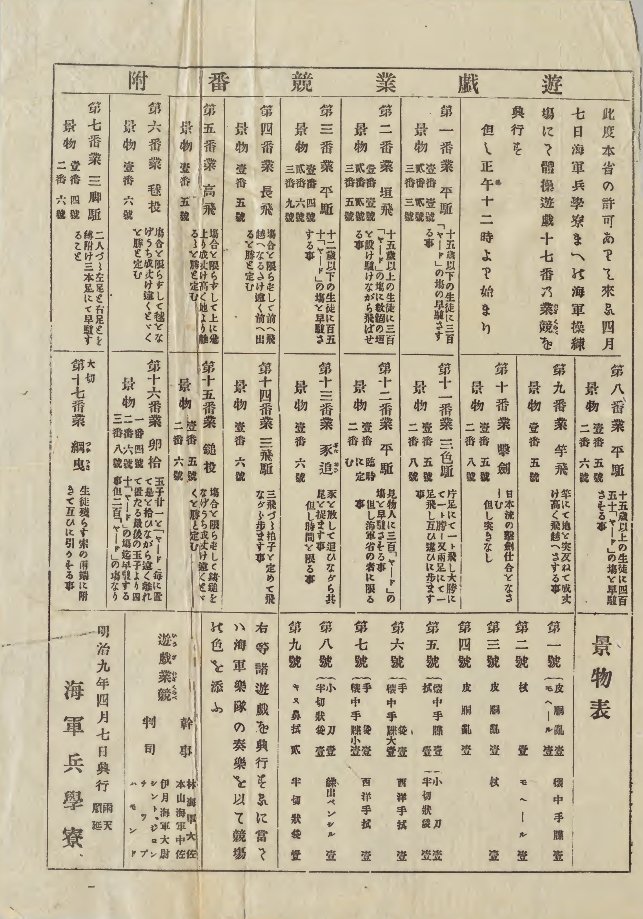 遊戯業競番附
此度本省の許可あて來る四月
七日海軍兵學寮まへの海軍操練
塲にて體操遊戯十七番の業競を
興行を
但し正午十二時よて始まり
第一番業 平駈
景物 壹番 壹號
貳番 貳號
三番 三號
十五歳以下の生徒に三百
「ヤード」の塲の早駈さす
る事
第二番業 垣飛
景物 壹番 壹號
貳番 貳號
三番 三號
十五歳以上の生徒に三百
「ヤード」の塲に數箇の垣
と設け駈けながら飛ばせ
る事
第三番業 平駈
景物 壹番 四號
貳番 六號
三番 九號
十二歳以下の生徒に百五
十「ヤード」の塲と早駈さ
する事
第四番業 長飛
景物 壹番 五號
塲合と限らをして前へ飛
越へなるさけ遠く前へ出
ると勝と定む
第五番業 高飛
景物 壹番 五號
塲合と限らずして上に飛
上り成丈け高く地より離
るゝと勝と定む
第六番業 毬投
景物 壹番 六號
塲合と限らずして毬とな
げうち成丈け遠くとゞく
と勝と定む
第七番業 三脚駈
景物 壹番 四號
二番 六號
二人づゝ左足と右足とを
縛附け三本足にて早駈す
ること
第八番業 平駈
景物 壹番 五號
十五歳以上の生徒に四百
五十「ヤード」の塲と早駈
させる事
第九番業 竿飛
景物 壹番 五號
竿にて地と突反ねて成丈
け高く飛越へさする事
第十番業 擊劍
景物 壹番 五號
二番 八號
日本流の擊劍仕合となさ
しむ
但し突きなし
第十一番業 三色駈
景物 壹番 五號
二番 八號
片足にて一ト飛し大勝に
て一ト勝一又兩足にて一
足飛し互ひ違ひに歩ます
第十二番業 平駈
景物 壹番 臨時
二番 に定む
見物人に三百「ヤード」の
塲と早駈させる事
但し海軍省の者に限る
事
第十三番業 豕追
景物 壹番 六號
豕と放して追ひながら其
尾と捉ます事
但し時間と限る事
第十四番業 三飛駈
景物 壹番 六號
三飛づゝ拍子と定めて飛
ながら歩ます事
第十五番業 鎚投
景物 壹番 五號
二番 六號
塲合と限らをして鐵鎚を
なげうち成丈け遠くとゞ
くと勝と定む
第十六番業 卵拾
景物 一番 四號
二番 六號
三番 八號
玉子廿一と一「ヤード」毎に置
て是と拾ひながら遠く離れ
て置たる最後の玉子より四
十「ヤード」の塲迄早駈する
事但二百「ヤード」の塲なり
大切
第十七番業 綱曳
生徒殘らず索の兩端に附
きて互ひに引かせる事
景物表
第一號 皮胴亂 壹 モヘール 壹 懷中手牒 壹
第二號 杖 壹 モヘール 壹
第三號 皮胴亂 壹 杖 壹
第四號 皮胴亂 壹
第五號 懷中手牒 壹 杖 壹 小刀 壹 半切狀袋 壹
第六號 手袋 壹 懷中手牒大 壹 西洋手拭 壹
第七號 手袋 壹 懷中手牒小 壹 西洋手拭 壹
第八號 小刀 壹 半切狀袋 壹 繰出ペンシル 壹
第九號 キヌ鼻拭 貳 半切狀袋 壹
右等諸遊戯を興行をるに當て
ハ海軍樂隊の奏樂を以て競塲
の色を添ふ
遊戯業競 幹事 林海軍大佐
本山海軍中佐
判司 伊月海軍大尉
シントジヨン
チツプ
ハモンド
明治九年四月七日興行 雨天順延
海軍兵學寮